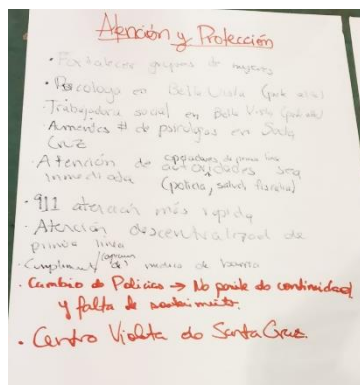 Atención y Protección
• Fortalecer grupos de mujeres
• Psicologa en Bella Vista (parte alta)
Trabajadora social en Bella Vista
Aumentar # de psicologas en Santa
Cruz
• Atención de operadores de primera línea
autoridades sea
inmediata (policia, salud, fiscalia)
• 911 atención más rapida
• Atención descentralizada de
primera linea
• Cumplimiento de medidas de
• Cambio de Policias → No permite da continuidad
y falta de
• Centro Violeta de Santa Cruz.